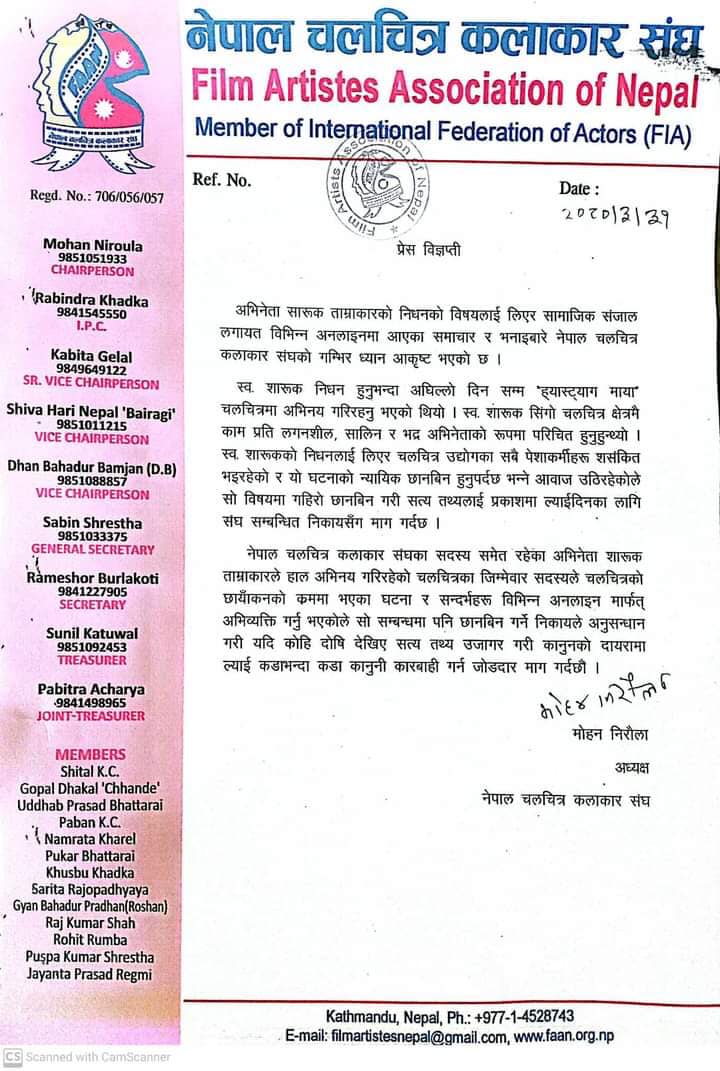 नेपाल चलचित्र कलाकार संघ
Film Artistes Association of Nepal
Member of International Federation of Actors (FIA)
FAAN
नेपाल चलचित्र कलाकार संघ
Regd. No.: 706/056/057
Ref. No.
Film Artists Association of Nepal
Date :
२०८०|३|३१
Mohan Niroula
9851051933
CHAIRPERSON
Rabindra Khadka
9841545550
I.P.C.
Kabita Gelal
9849649122
SR. VICE CHAIRPERSON
Shiva Hari Nepal 'Bairagi'
9851011215
VICE CHAIRPERSON
Dhan Bahadur Bamjan (D.B)
9851088857
VICE CHAIRPERSON
Sabin Shrestha
9851033375
GENERAL SECRETARY
Rameshor Burlakoti
9841227905
SECRETARY
Sunil Katuwal
9851092453
TREASURER
Pabitra Acharya
9841498965
JOINT-TREASURER
MEMBERS
Shital K.C.
Gopal Dhakal 'Chhande'
Uddhab Prasad Bhattarai
Paban K.C.
Namrata Kharel
Pukar Bhattarai
Khusbu Khadka
Sarita Rajopadhyaya
Gyan Bahadur Pradhan(Roshan)
Raj Kumar Shah
Rohit Rumba
Puspa Kumar Shrestha
Jayanta Prasad Regmi
प्रेस विज्ञप्ती
अभिनेता सारूक ताम्राकारको निधनको विषयलाई लिएर सामाजिक संजाल
लगायत विभिन्न अनलाइनमा आएका समाचार र भनाइबारे नेपाल चलचित्र
कलाकार संघको गम्भिर ध्यान आकृष्ट भएको छ ।
स्व. शारूक निधन हुनुभन्दा अघिल्लो दिन सम्म "ह्यास्ट्याग माया"
चलचित्रमा अभिनय गरिरहनु भएको थियो । स्व. शारूक सिंगो चलचित्र क्षेत्रमै
काम प्रति लगनशील, सालिन र भद्र अभिनेताको रूपमा परिचित हुनुहुन्थ्यो ।
स्व. शारूकको निधनलाई लिएर चलचित्र उद्योगका सबै पेशाकर्मीहरू शसंकित
भइरहेको र यो घटनाको न्यायिक छानबिन हुनुपर्दछ भन्ने आवाज उठिरहेकोले
सो विषयमा गहिरो छानबिन गरी सत्य तथ्यलाई प्रकाशमा ल्याईदिनका लागि
संघ सम्बन्धित निकायसँग माग गर्दछ ।
नेपाल चलचित्र कलाकार संघका सदस्य समेत रहेका अभिनेता शारूक
ताम्राकारले हाल अभिनय गरिरहेको चलचित्रका जिम्मेवार सदस्यले चलचित्रको
छायाँकनको क्रममा भएका घटना र सन्दर्भहरू विभिन्न अनलाइन मार्फत्
अभिव्यक्ति गर्नु भएकोले सो सम्बन्धमा पनि छानबिन गर्ने निकायले अनुसन्धान
गरी यदि कोहि दोषि देखिए सत्य तथ्य उजागर गरी कानुनको दायरामा
ल्याई कडाभन्दा कडा कानुनी कारबाही गर्न जोडदार माग गर्दछौ ।
मोहन निरौला
अध्यक्ष
नेपाल चलचित्र कलाकार संघ
Kathmandu, Nepal, Ph.: +977-1-4528743
E-mail: filmartistesnepal@gmail.com, www.faan.org.np
CS Scanned with CamScanner